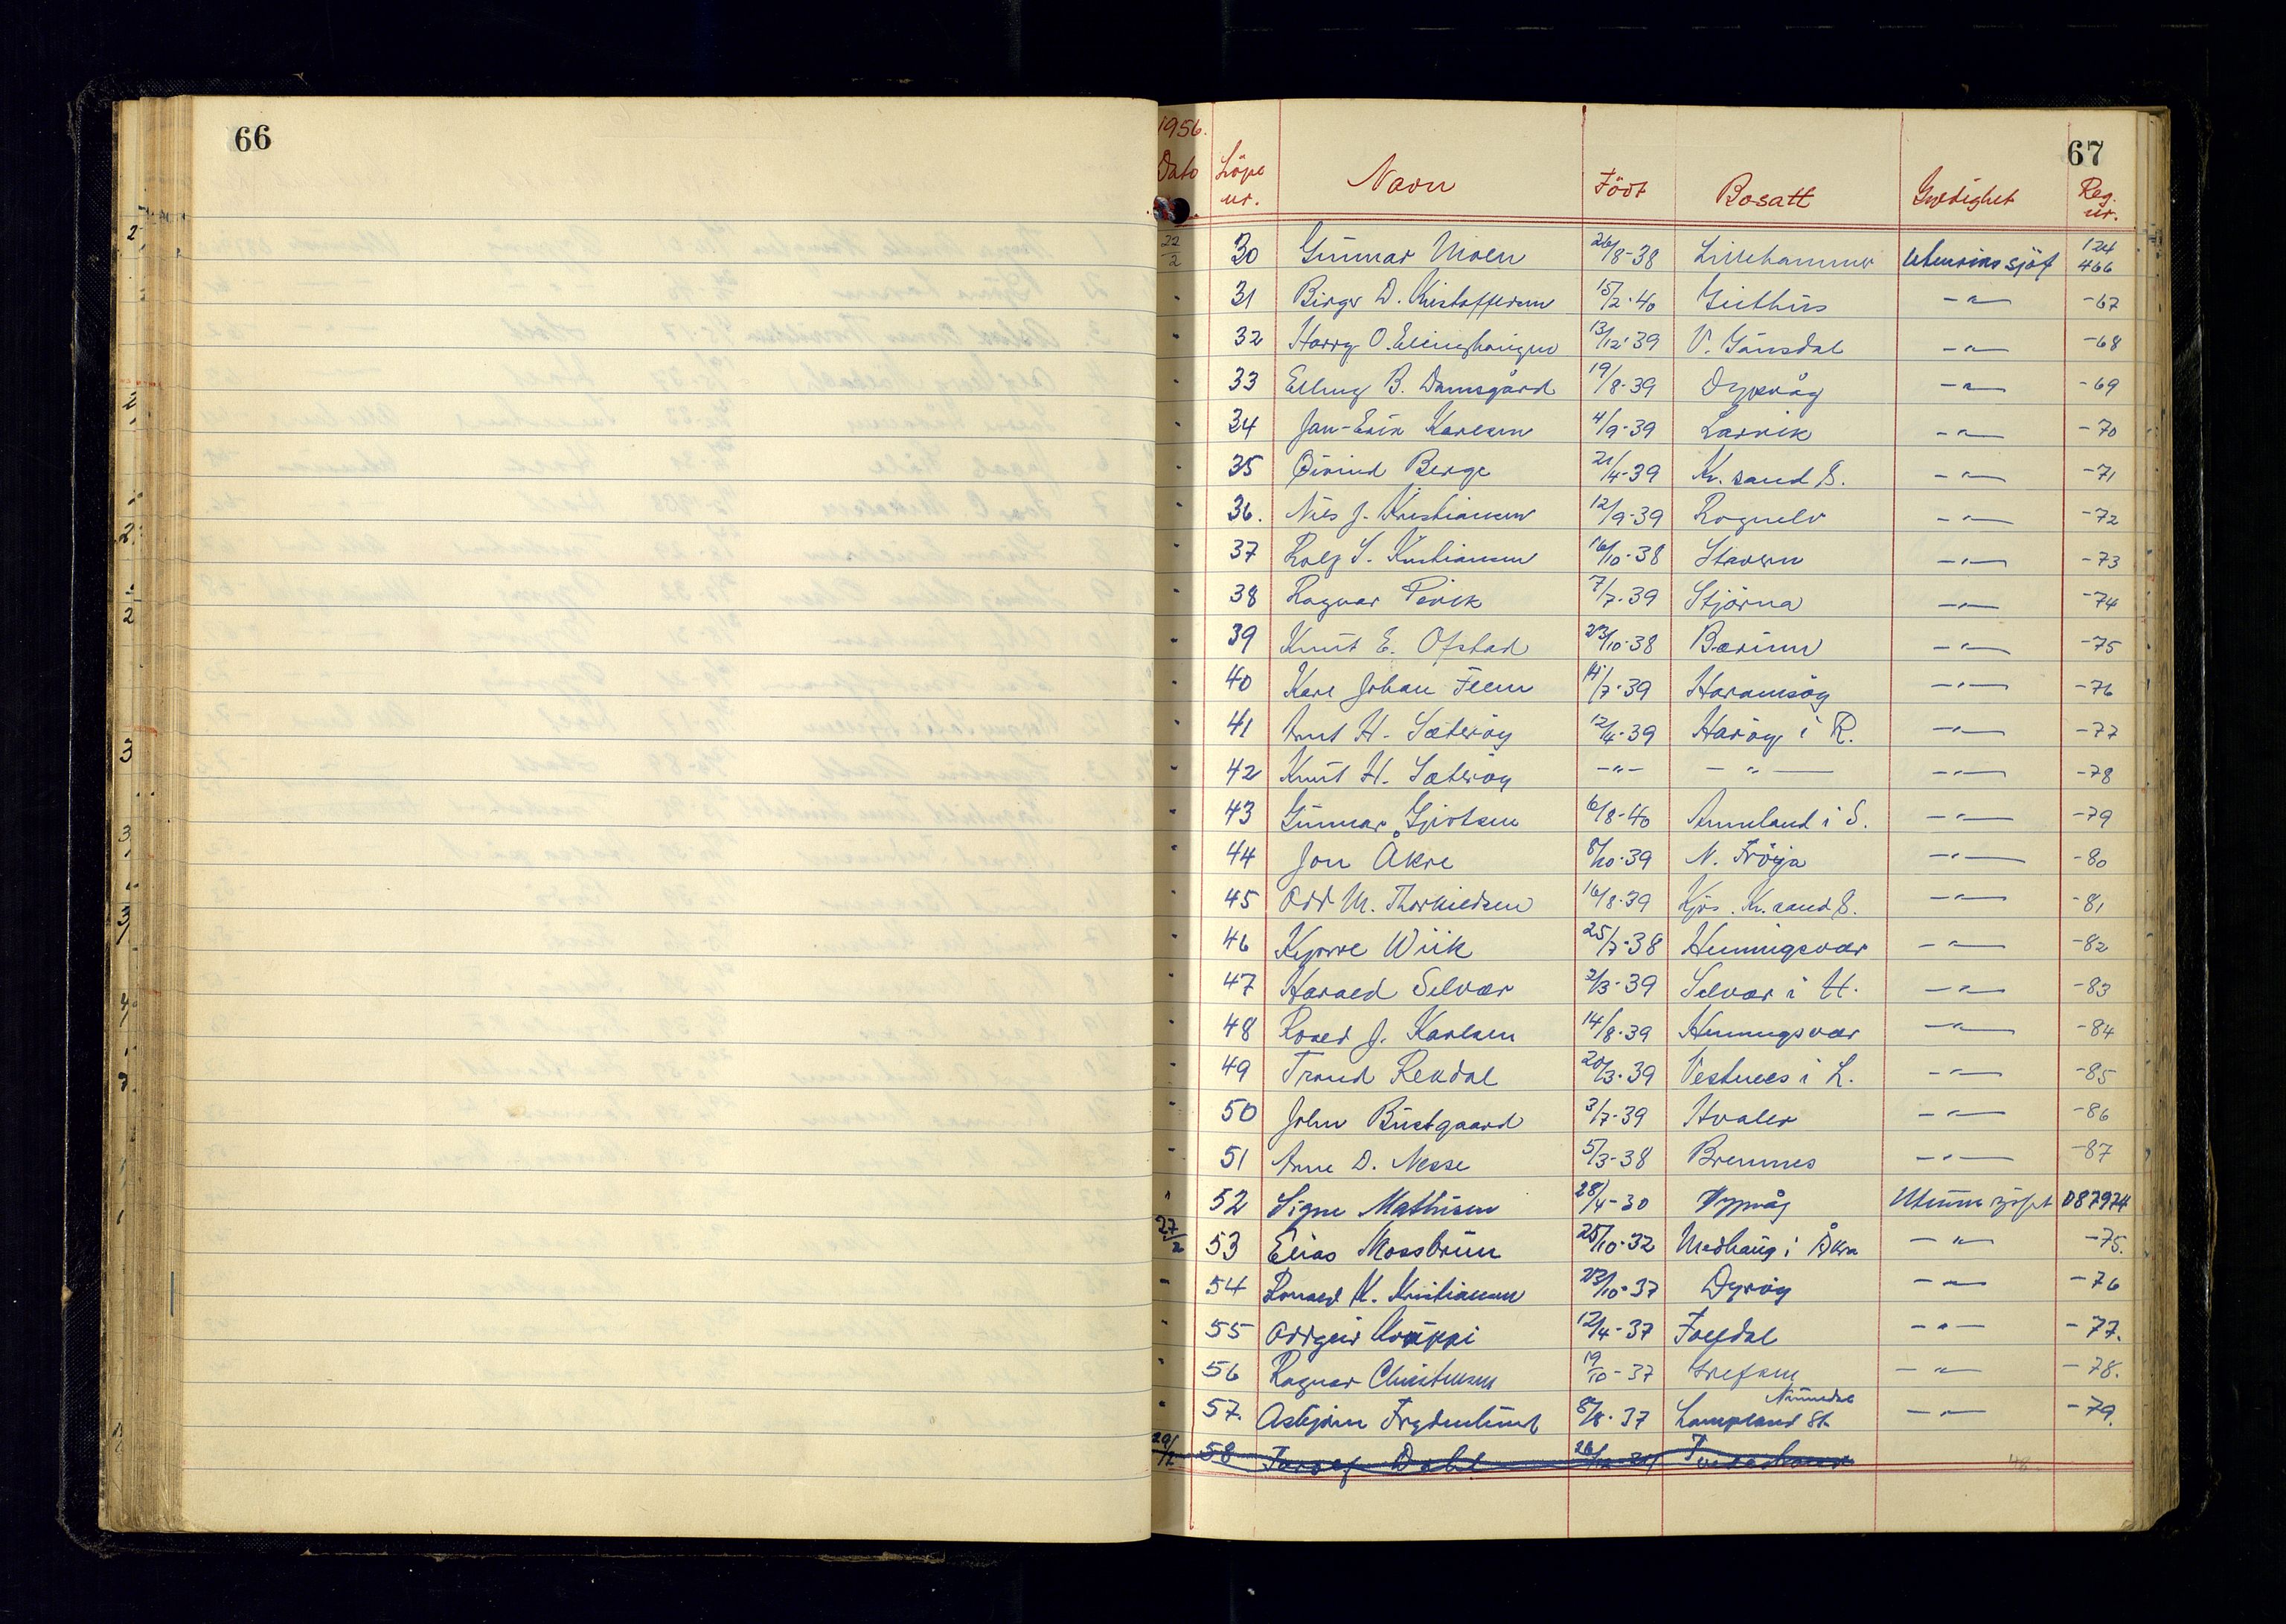 66
67
1956.
Dato Löpe nr. Navn Födt Bosatt Gyldighet Reg. nr.
22/2 30 Gunnar Moen 26/8-38 Lillehammer utenriks sjöf 124 466
31 Birger D. Kristoffersen 15/2-40 Geithus -"- -67
32 Harry O. 13/12-39 V. Gausdal -"- -68
33 Elling B. Damsgård 19/8-39 Dypvåg -"- -69
34 Jan-Erik Karlsen 4/9-39 Larvik -"- -70
35 Öivind Berge 21/4-39 Kr. sand S. -"- -71
36. Nils J. Kristiansen 12/9-39 Rognelv -"- -72
37 Rolf S. Kristiansen 16/10-38 Stavern -"- -73
38 Ragnar 7/7-39 Stjörna -"- -74
39 Knut E. Ofstad 23/10-38 Bærum -"- -75
40 Karl Johan Flem 14/7-39 Haramsöy -"- -76
41 Arnt H. Sæteröy 12/4-39 Haröy i R. -"- -77
42 Knut H. Sæteröy -"- -"- -"- -78
43 Gunnar Gjertsen 6/8-40 i S. -"- -79
44 Jon Åkre 8/10-39 N. Fröya -"- -80
45 Odd M. Thorkildsen 16/8-39 Kjos. Kr. sand S. -"- -81
46 Kjorre Wiik 25/7-38 Henningsvær -"- -82
47 Harald Selvær 2/3-39 Selvær i H. -"- -83
48 Roald J. Karlsen 14/8-39 Henningsvær -"- -84
49 Trond Rekdal 20/3-39 Vestnes i L. -"- -85
50 John Bustgaard 3/7-39 Hvaler -"- -86
51 Arne D. Nesse 5/3-38 Bremnes -"- -87
52 Signe Mathisen 28/4-30 Dypvåg Utenr. sjöft 087974
27/2 53 Elias Mossbrun 25/10-32 Medhaug i Åkra -"- -75.
54 Ronald K. Kristiansen 23/10-37 Dyröy -"- -76
55 Oddgeir Kruppi 12/4-37 Folldal -"- -77.
56 Ragnar Christensen 19/10-37 Grefsen -"- -78.
Numedal
57. Asbjörn Frydenlund 8/8-37 Lampeland St. -"- -79.
29/2 58 Torolf Dahl